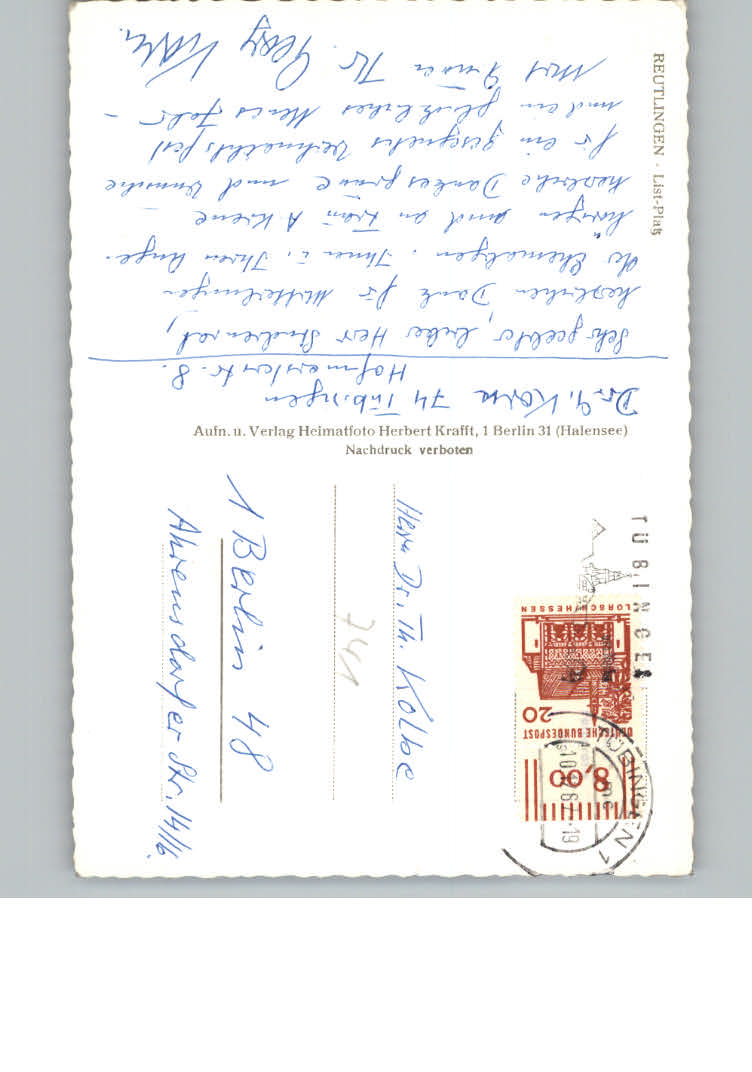 REUTLINGEN · List-Platz
Dr. G. Korn 74 Tübingen
Hofmeisterstr. 8.
Sehr geehrter, lieber Herr Studienrat,
herzlichen Dank für Mitteilungen
der Ehemaligen. Ihnen u. Ihren Ange-
hörigen und an Frau A. Krene
herzliche Dankesgrüsse und Wünsche
für ein gesegnetes Weihnachtsfest
und ein glückliches Neues Jahr –
Mit Ihr
Aufn. u. Verlag Heimatfoto Herbert Krafft, 1 Berlin 31 (Halensee)
Nachdruck verboten
TÜBINGEN
TÜBINGEN 1
-19
8,00
DEUTSCHE BUNDESPOST
20
LORSCH/HESSEN
Herrn Dr. Th. Kolbe
741
1 Berlin 48
Ahrensdorfer Str. 14/16.